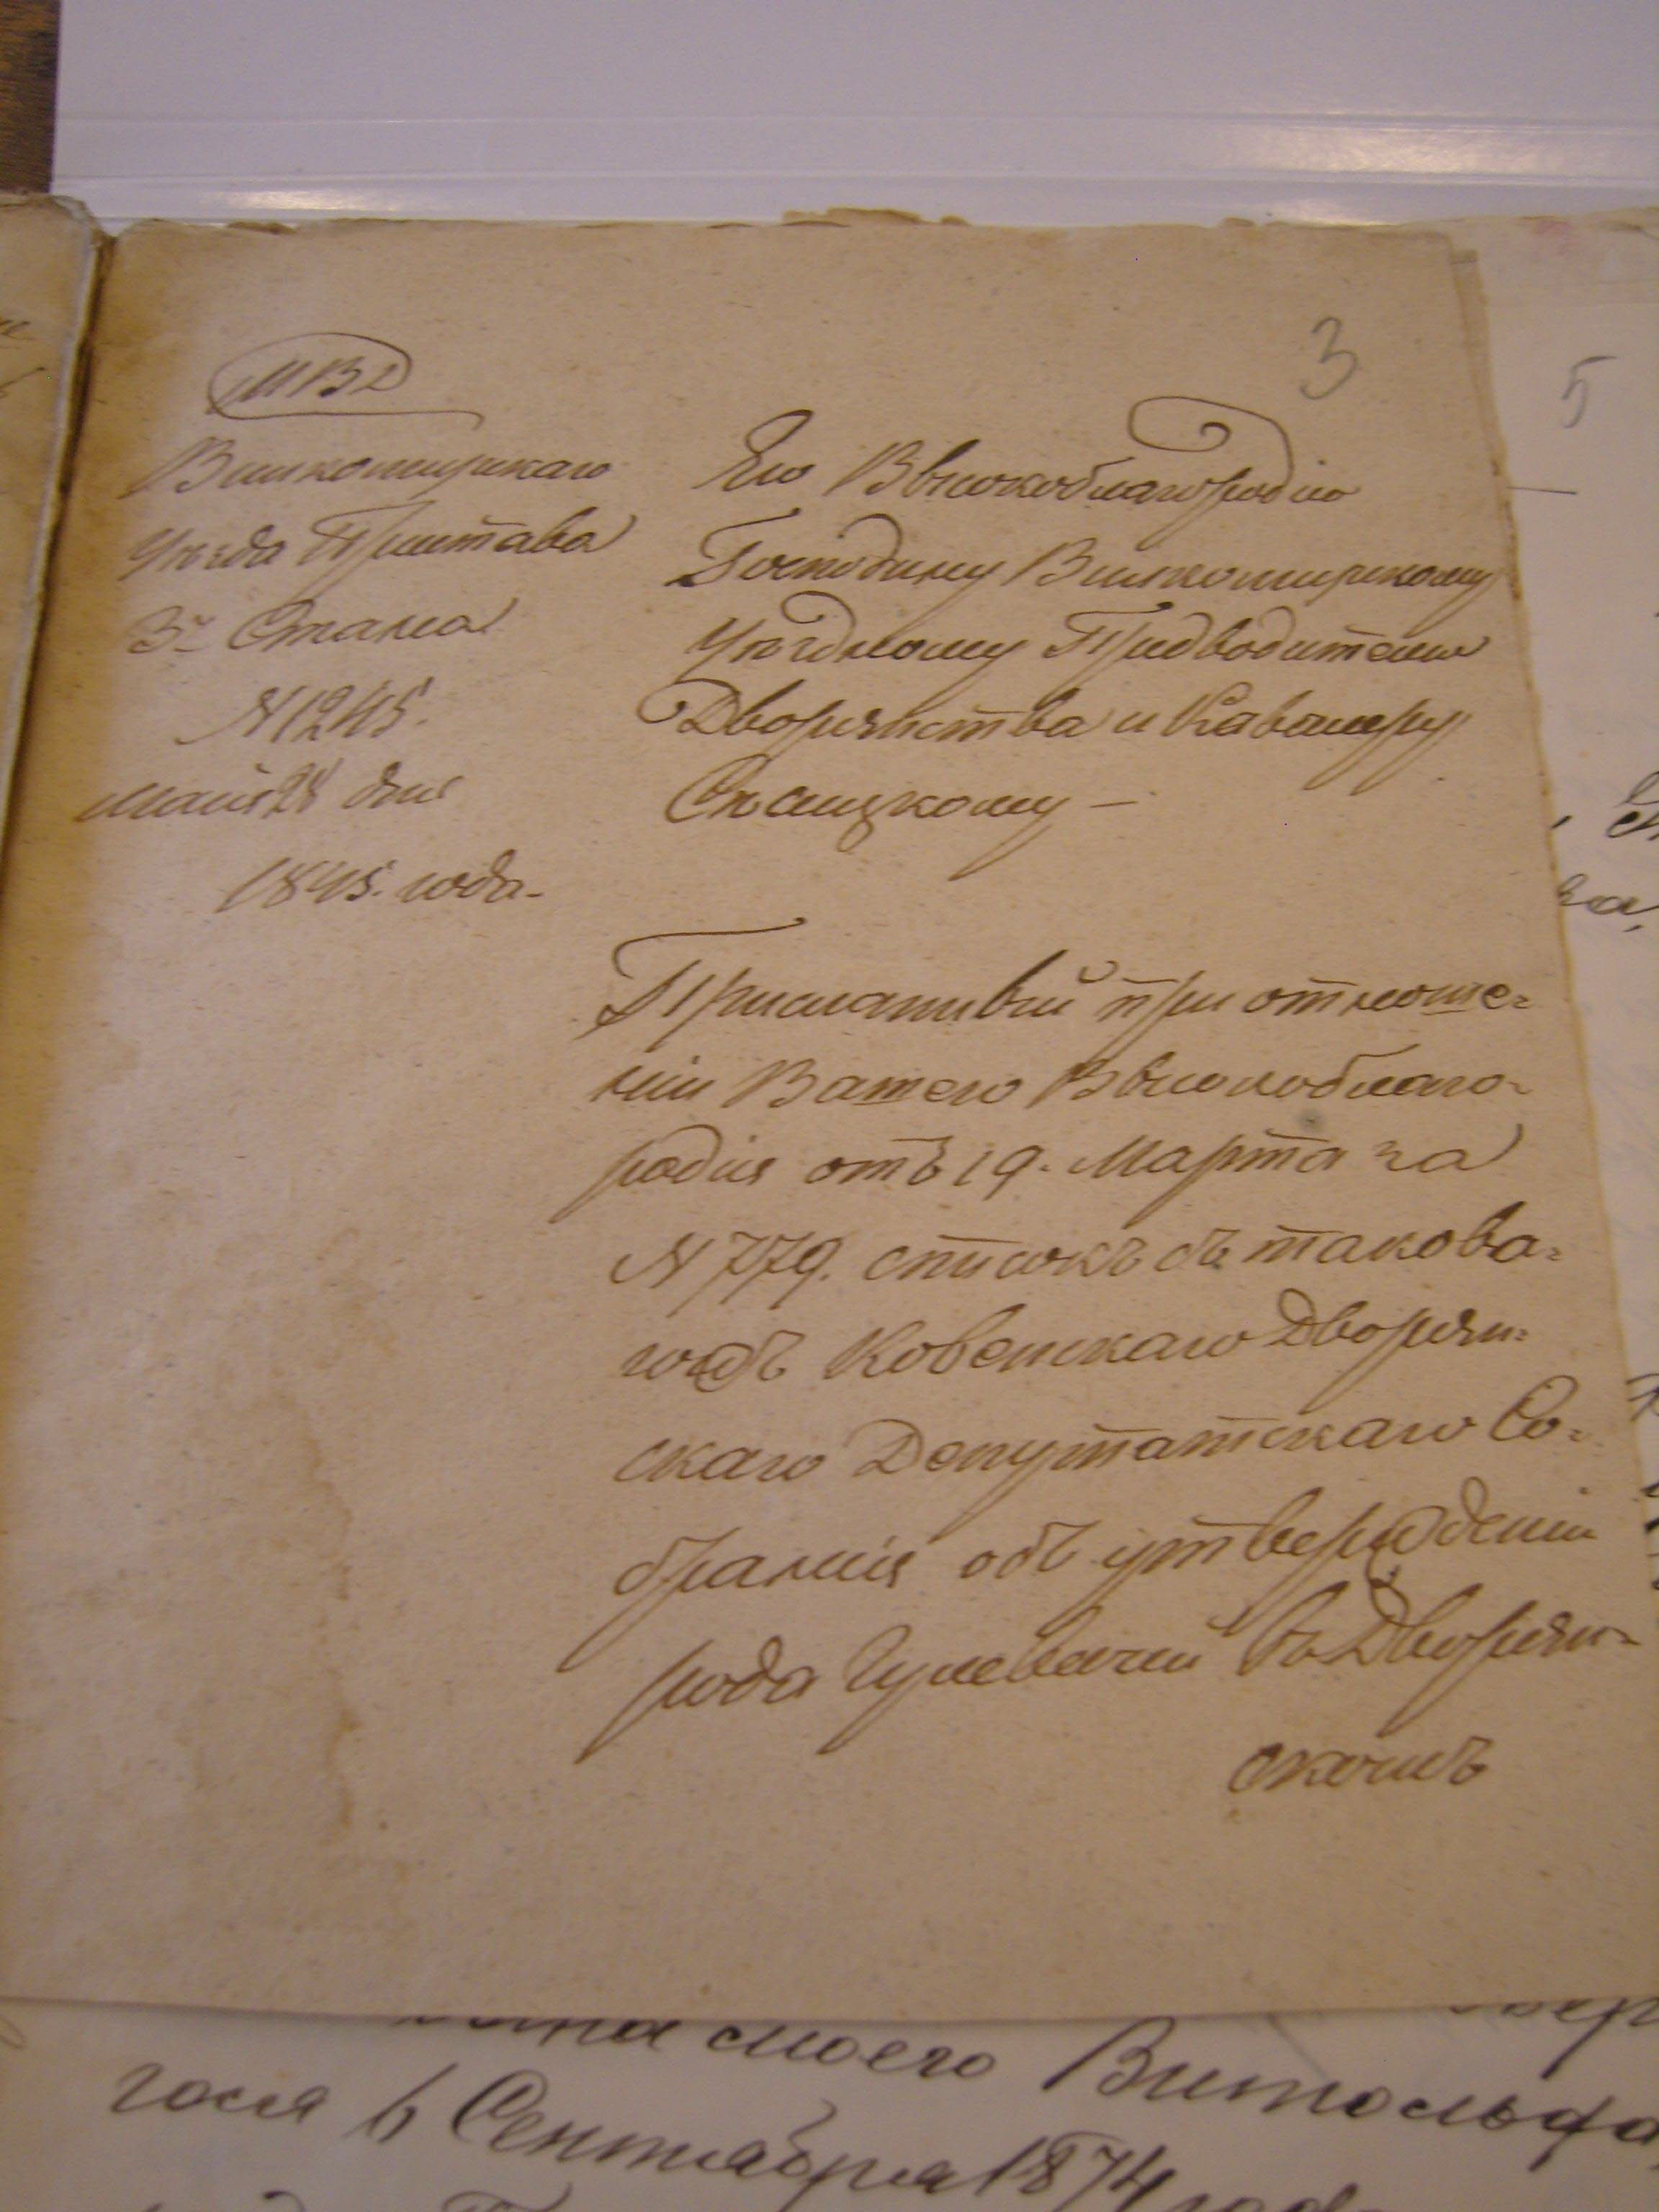 3
5
МВД
Вилкомирскаго
Уѣзда Пристава
3го Стана
N 1245.
Маія 28 дня
1845. года.
Его Высокоблагородію
Господину Вилкомирскому
Уѣздному Предводителю
Дворянства и Кавалеру
Сѣсицкому —
Приславный при отноше-
ніи Вашего Высокоблаго-
родія отъ 19. Марта за
N 779. списокъ съ такова-
гожъ Ковенскаго Дворян-
скаго Депутатскаго Со-
бранія объ утвержденіи
рода въ Дворян-
скомъ
моего Витольда
6 Сентября 1874